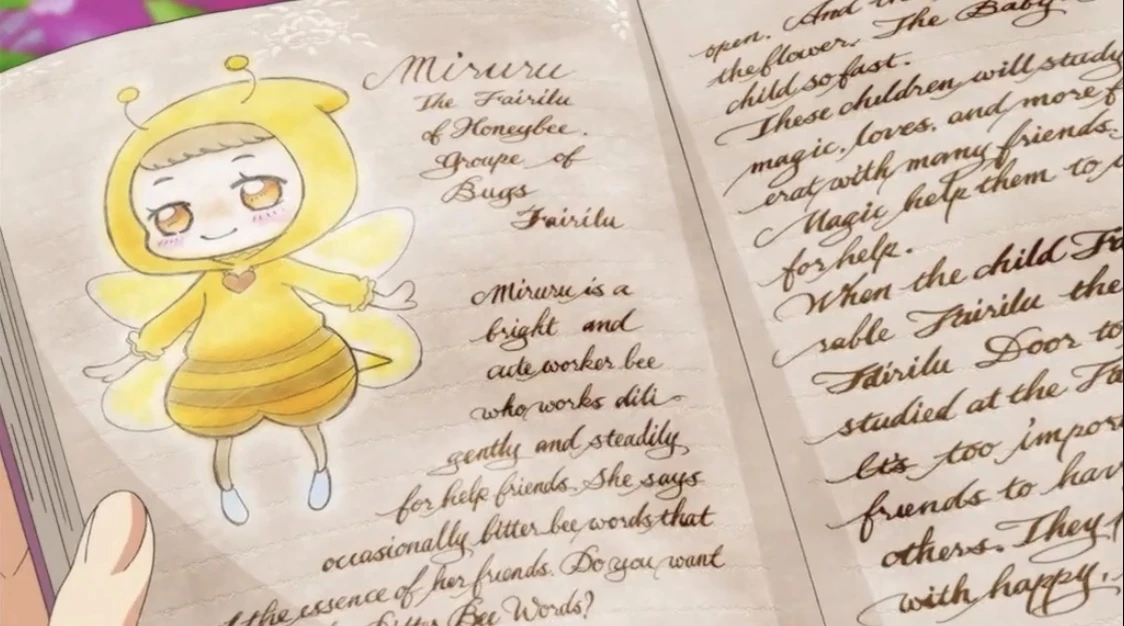 Miruru
The Fairilu
of Honeybee.
Groupe of
Bugs
Fairilu
Miruru is a
bright and
cute worker bee
who works dili-
gently and steadily
for help friends. She says
occasionally bitter bee words that
the essence of her friends. Do you want
Bee Words?
And
open. The Baby
the flower.
child so fast.
These children will study
magic, loves, and more
erat with many friends.
Magic help them to
for help.
When the child
rable Fairilu the
Fairilu Door to
studied at the
It's too
friends to
others. They
with happy.